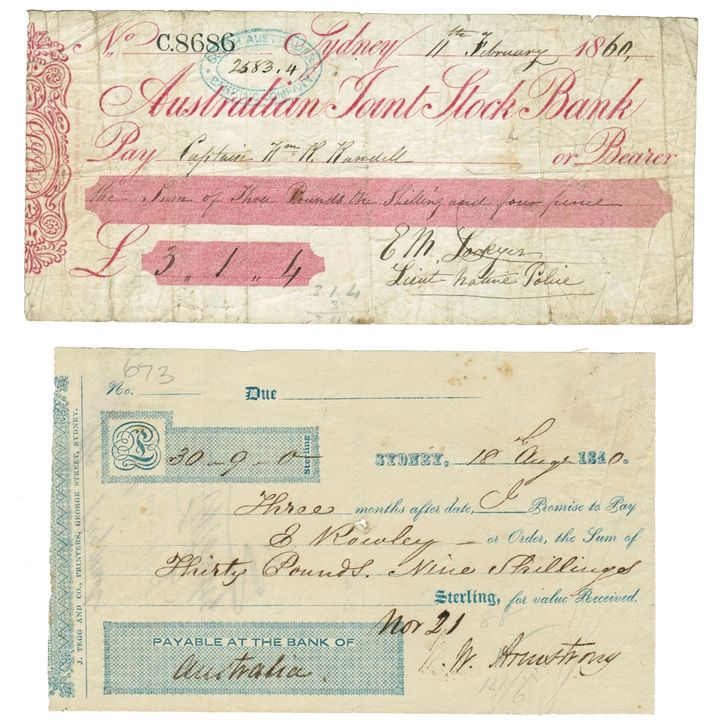 No C.8686 Sydney 11th February 1860,
SOUTH AUSTRALIAN BANKING COMPANY
2583.4
Australian Joint Stock Bank
Pay Captain Wm R. Randell or Bearer
the Sum of Three Pounds One Shilling and four pence
£ 3 " 1 " 4
E M Lockyer
Lieut Native Police
3.1.4
3
673
No. Due
£ 30 - 9 - 0 Sterling
SYDNEY, 18 Augt 1840.
Three months after date, I Promise to Pay
E Rowley or Order, the Sum of
Thirty Pounds. Nine Shillings
Sterling, for value Received.
Nov 21
PAYABLE AT THE BANK OF
Australia.
W. Armstrong
J. TEGG AND CO., PRINTERS, GEORGE STREET, SYDNEY.